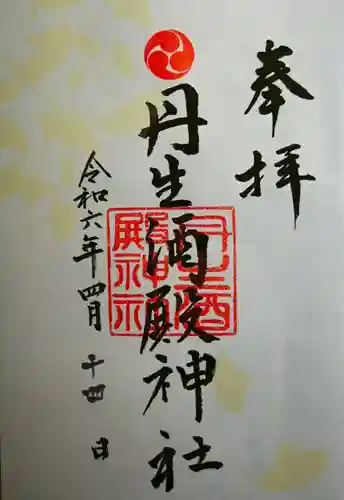 奉拝
丹生酒殿神社
丹生酒殿神社
令和六年四月十四日